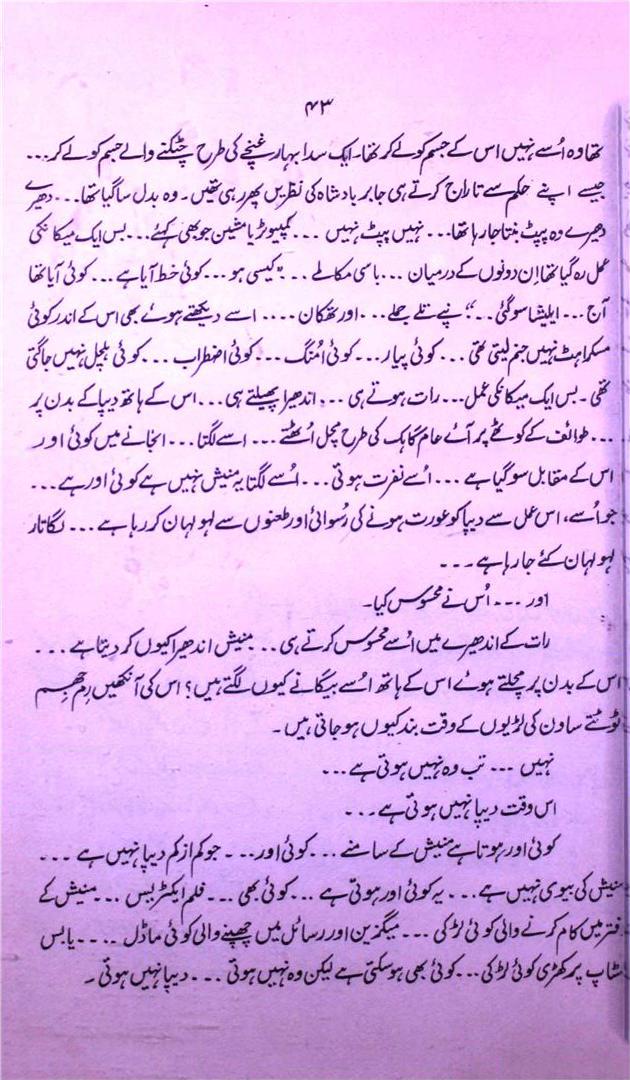 ۴۳
تھا وہ اُسے نہیں اس کے جسم کو لے کر تھا۔ ایک سدا بہار غنچے کی طرح چٹکنے والے جسم کو لے کر...
جیسے اپنے حکم سے تاراج کرتے ہی جابر بادشاہ کی نظریں پھر رہی تھیں۔ وہ بدل سا گیا تھا... دھیرے
دھیرے وہ پپٹ بنتا جا رہا تھا... نہیں پپٹ نہیں... کمپیوٹر یا مشین جو بھی کہئے... بس ایک میکانکی
عمل رہ گیا تھا ان دونوں کے درمیان... باسی مکالمے... ”کیسی ہو... کوئی خط آیا ہے... کوئی آیا تھا
آج... ایلیشا سو گئی...“ نپے تلے جملے... اور تھکان.... اسے دیکھتے ہوئے بھی اس کے اندر کوئی
مسکراہٹ نہیں جنم لیتی تھی... کوئی پیار... کوئی اُمنگ... کوئی اضطراب... کوئی ہلچل نہیں جاگتی
تھی۔ بس ایک میکانکی عمل... رات ہوتے ہی... اندھیرا پھیلتے ہی... اس کے ہاتھ دیپا کے بدن پر
... طوائف کے کوٹھے پر آئے عام گاہک کی طرح مچل اُٹھتے... اسے لگتا... انجانے میں کوئی اور
اس کے مقابل سو گیا ہے... اُسے نفرت ہوتی... اُسے لگتا یہ منیش نہیں ہے کوئی اور ہے...
جو اُسے، اس عمل سے دیپا کو عورت ہونے کی رُسوائی اور طعنوں سے لہولہان کر رہا ہے... لگاتار
لہولہان کئے جا رہا ہے...
اور... اُس نے محسوس کیا۔
رات کے اندھیرے میں اُسے محسوس کرتے ہی... منیش اندھیرا کیوں کر دیتا ہے...
اس کے بدن پر مچلتے ہوئے اس کے ہاتھ اُسے بیگانے کیوں لگتے ہیں؟ اس کی آنکھیں رم جھم
ٹوٹتے ساون کی لڑیوں کے وقت بند کیوں ہو جاتی ہیں۔
نہیں... تب وہ نہیں ہوتی ہے...
اس وقت دیپا نہیں ہوتی ہے...
کوئی اور ہوتا ہے منیش کے سامنے... کوئی اور... جو کم از کم دیپا نہیں ہے...
منیش کی بیوی نہیں ہے... یہ کوئی اور ہوتی ہے... کوئی بھی... فلم ایکٹریس... منیش کے
دفتر میں کام کرنے والی کوئی لڑکی... میگزین اور رسائل میں چھپنے والی کوئی ماڈل.... یا بس
اسٹاپ پر کھڑی کوئی لڑکی... کوئی بھی ہو سکتی ہے لیکن وہ نہیں ہوتی... دیپا نہیں ہوتی۔